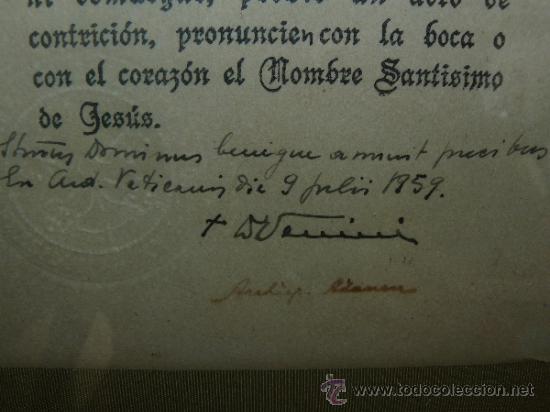 ni comulgar, previo un acto de
contrición, pronuncien con la boca o
con el corazón el Nombre Santisimo
de Jesús.
Dominus benigne annuit precibus
Vaticanis die 9 Julii 1959.
+ D Venini
Archiep.
todocoleccion
www.todocoleccion.net